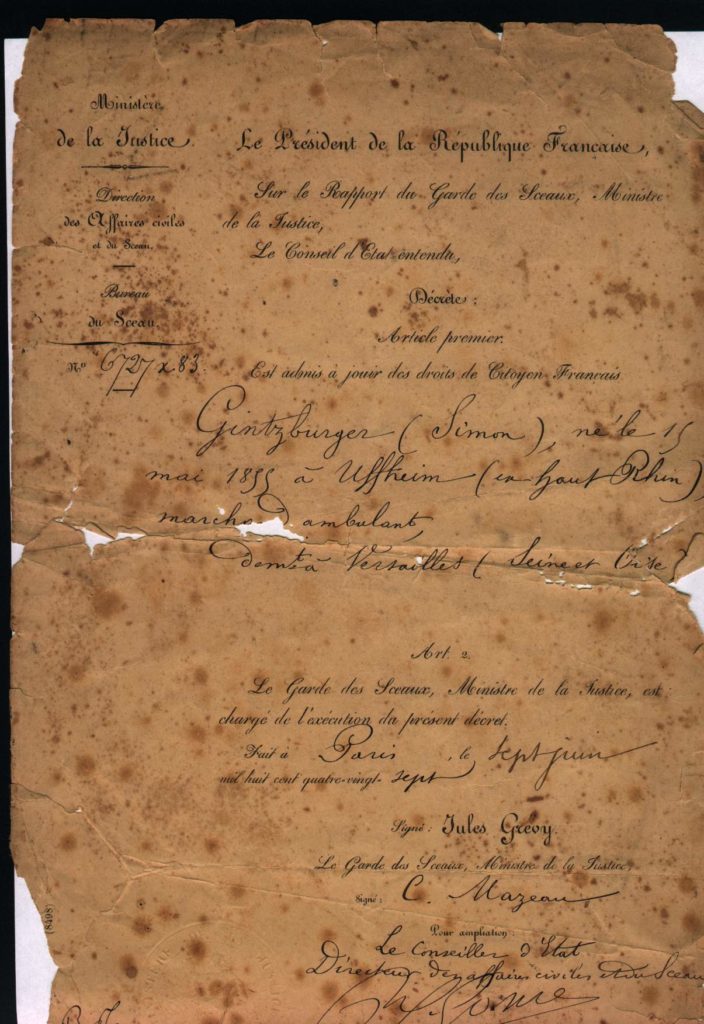 Ministère
de la Justice.
Direction
des Affaires civiles
et du Sceau.
Bureau
du Sceau.
N.º 6727 x 83
Le Président de la République Française,
Sur le Rapport du Garde des Sceaux, Ministre
de la Justice,
Le Conseil d'Etat entendu,
Décrète :
Article premier.
Est admis à jouir des droits de Citoyen Français
Gintzburger (Simon), né le 15
mai 1855 à Uffheim (ex-haut Rhin),
marchand ambulant,
demt à Versailles (Seine et Oise)
Art. 2.
Le Garde des Sceaux, Ministre de la Justice, est
chargé de l'exécution du présent décret.
Fait à Paris, le sept juin
mil huit cent quatre-vingt-sept
Signé : Jules Grévy.
Le Garde des Sceaux, Ministre de la Justice,
Signé : C. Mazeau
Pour ampliation :
Le Conseiller d'Etat
Directeur des affaires civiles et du Sceau
(8498)